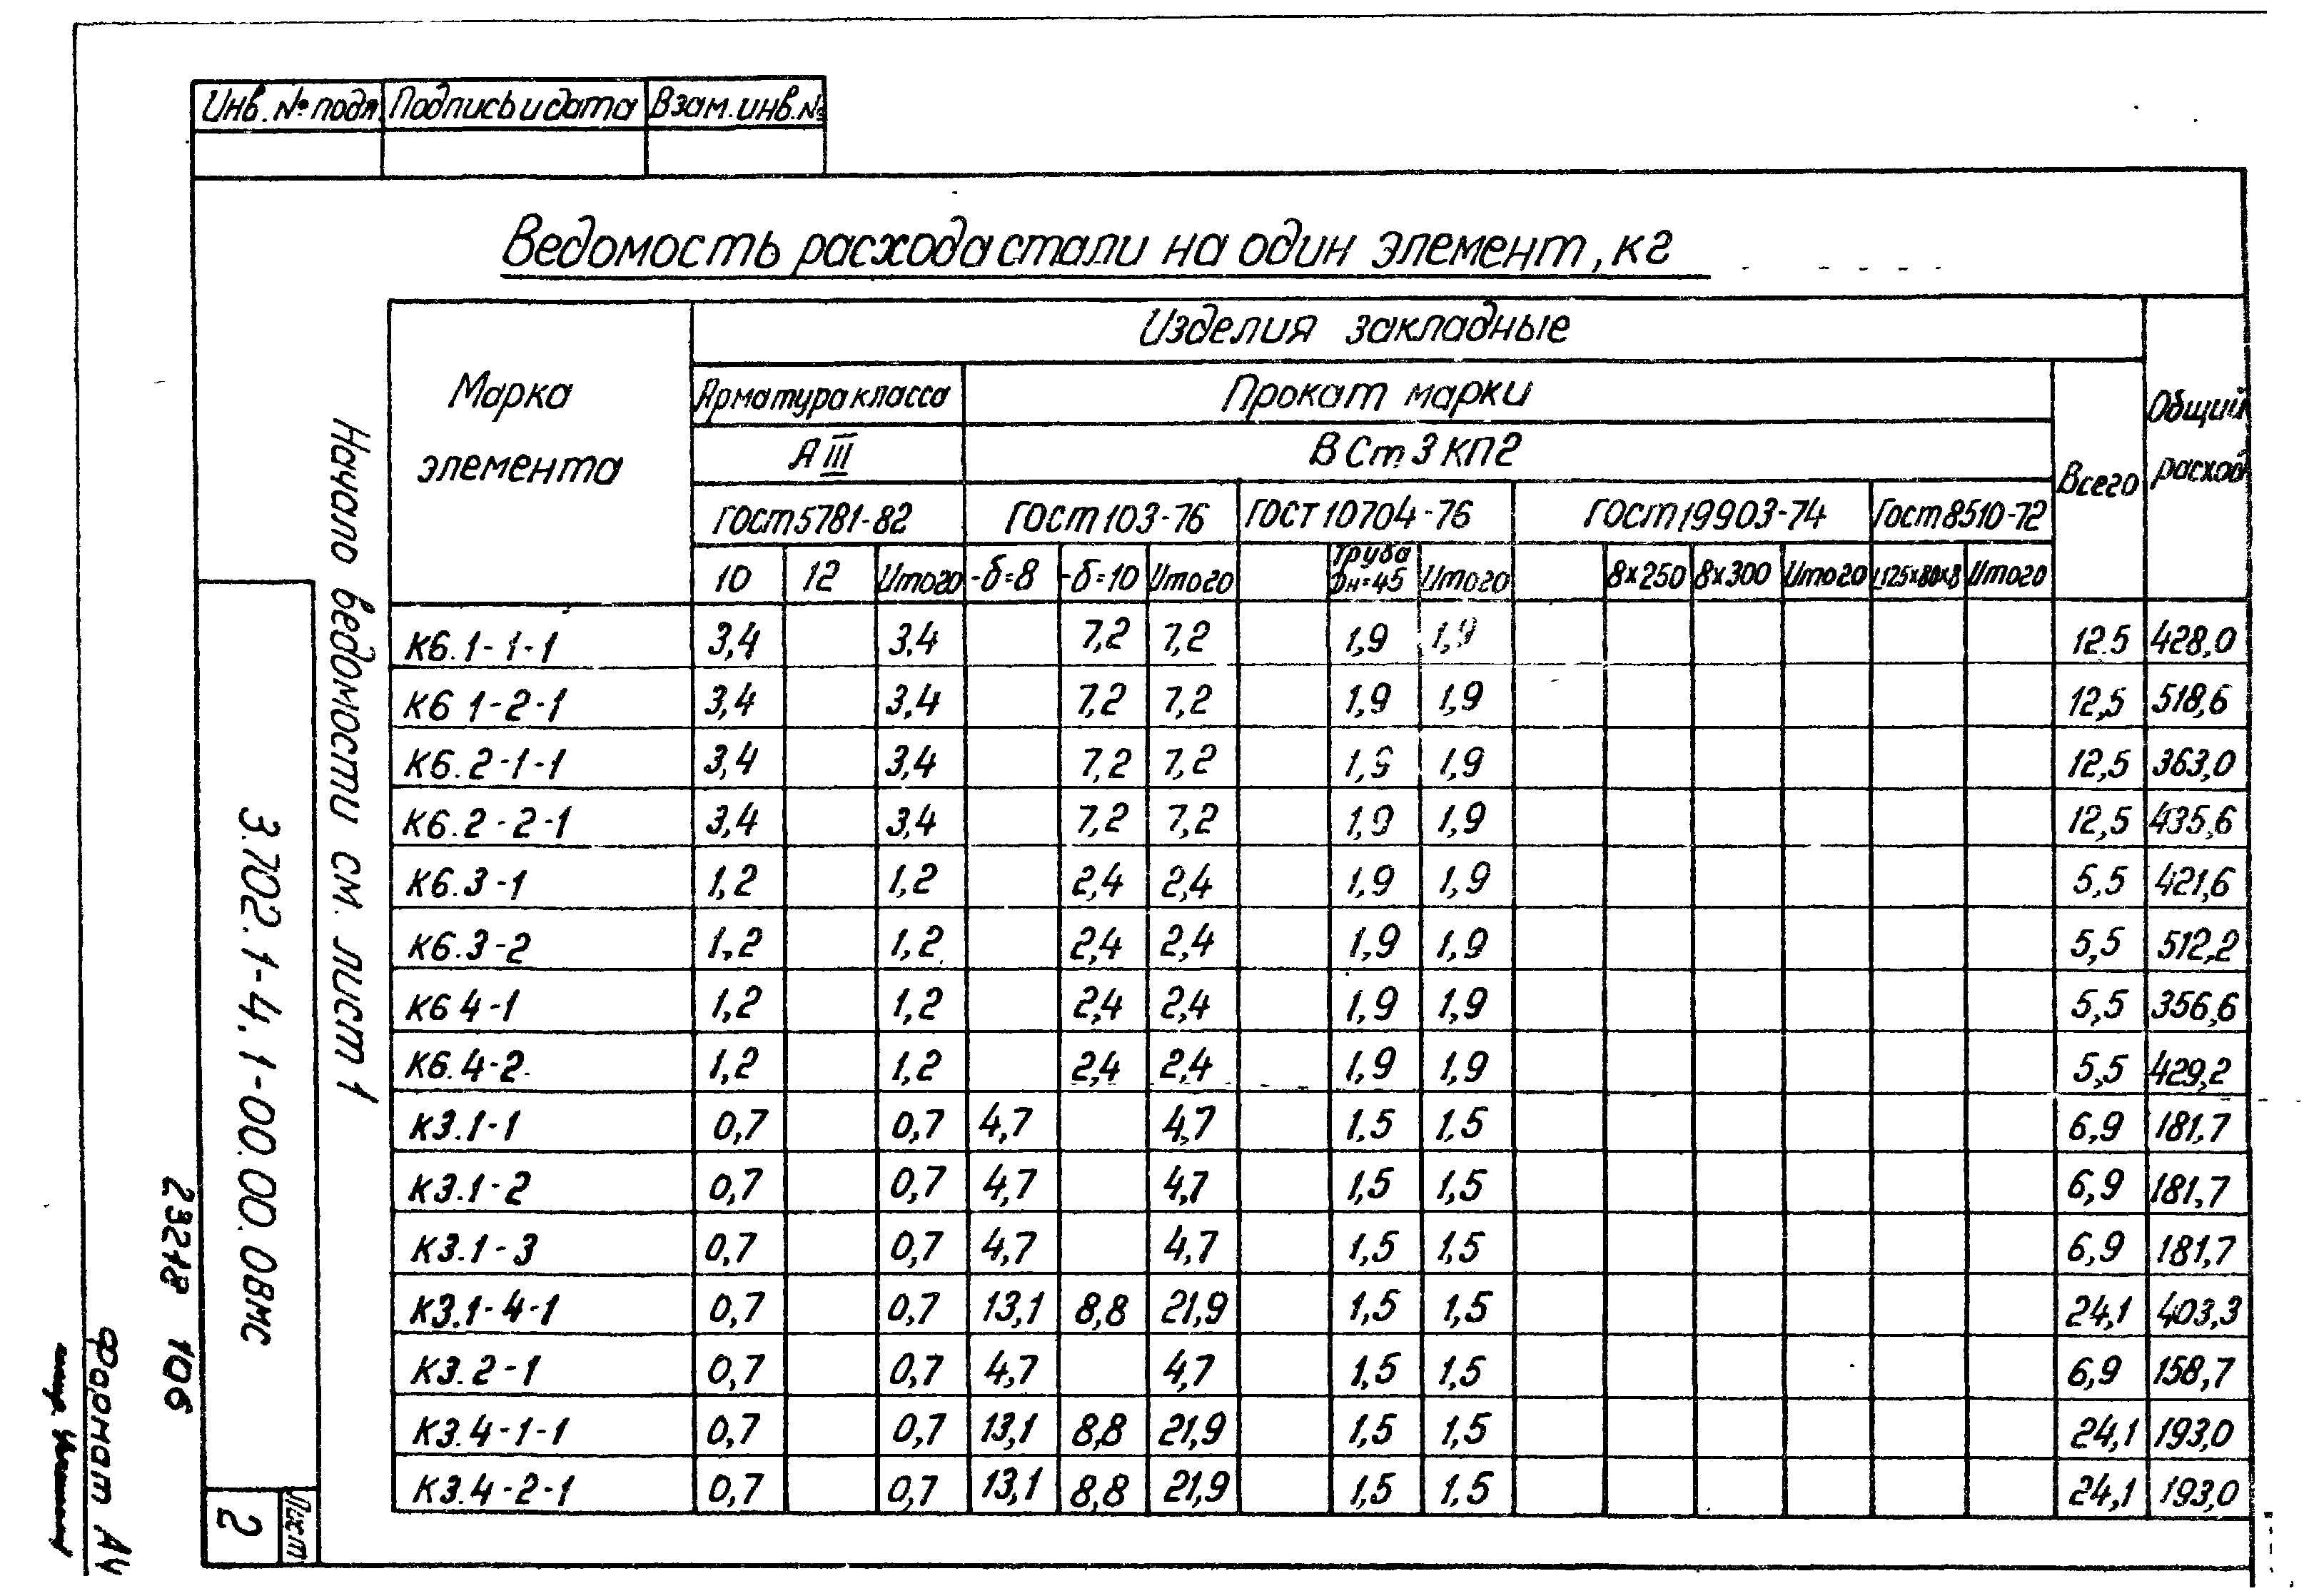 Инв. № подл. Подпись и дата Взам. инв. №
Ведомость расхода стали на один элемент, кг
Марка элемента
Изделия закладные
Общий расход
Арматура класса
Прокат марки
Всего
А III
ВСт3КП2
ГОСТ 5781-82 ГОСТ 103-76 ГОСТ 10704-76 ГОСТ 19903-74 ГОСТ 8510-72
10 12 Итого -δ=8 -δ=10 Итого Труба Фн=45 Итого 8×250 8×300 Итого L125×80×8 Итого
К6.1-1-1 3,4 3,4 7,2 7,2 1,9 1,9 12.5 428,0
К6 1-2-1 3,4 3,4 7,2 7,2 1,9 1,9 12,5 518,6
К6.2-1-1 3,4 3,4 7,2 7,2 1,9 1,9 12,5 363,0
К6.2-2-1 3,4 3,4 7,2 7,2 1,9 1,9 12,5 435,6
К6.3-1 1,2 1,2 2,4 2,4 1,9 1,9 5,5 421,6
К6.3-2 1,2 1,2 2,4 2,4 1,9 1,9 5,5 512,2
К6 4-1 1,2 1,2 2,4 2,4 1,9 1,9 5,5 356,6
К6.4-2 1,2 1,2 2,4 2,4 1,9 1,9 5,5 429,2
К3.1-1 0,7 0,7 4,7 4,7 1,5 1,5 6,9 181,7
К3.1-2 0,7 0,7 4,7 4,7 1,5 1,5 6,9 181,7
К3.1-3 0,7 0,7 4,7 4,7 1,5 1,5 6,9 181,7
К3.1-4-1 0,7 0,7 13,1 8,8 21,9 1,5 1,5 24,1 403,3
К3.2-1 0,7 0,7 4,7 4,7 1,5 1,5 6,9 158,7
К3.4-1-1 0,7 0,7 13,1 8,8 21,9 1,5 1,5 24,1 193,0
К3.4-2-1 0,7 0,7 13,1 8,8 21,9 1,5 1,5 24,1 193,0
Начало ведомости см. лист 1
3.702.1-4.1-00.00.0ВМС
Лист
2
106
Формат А4